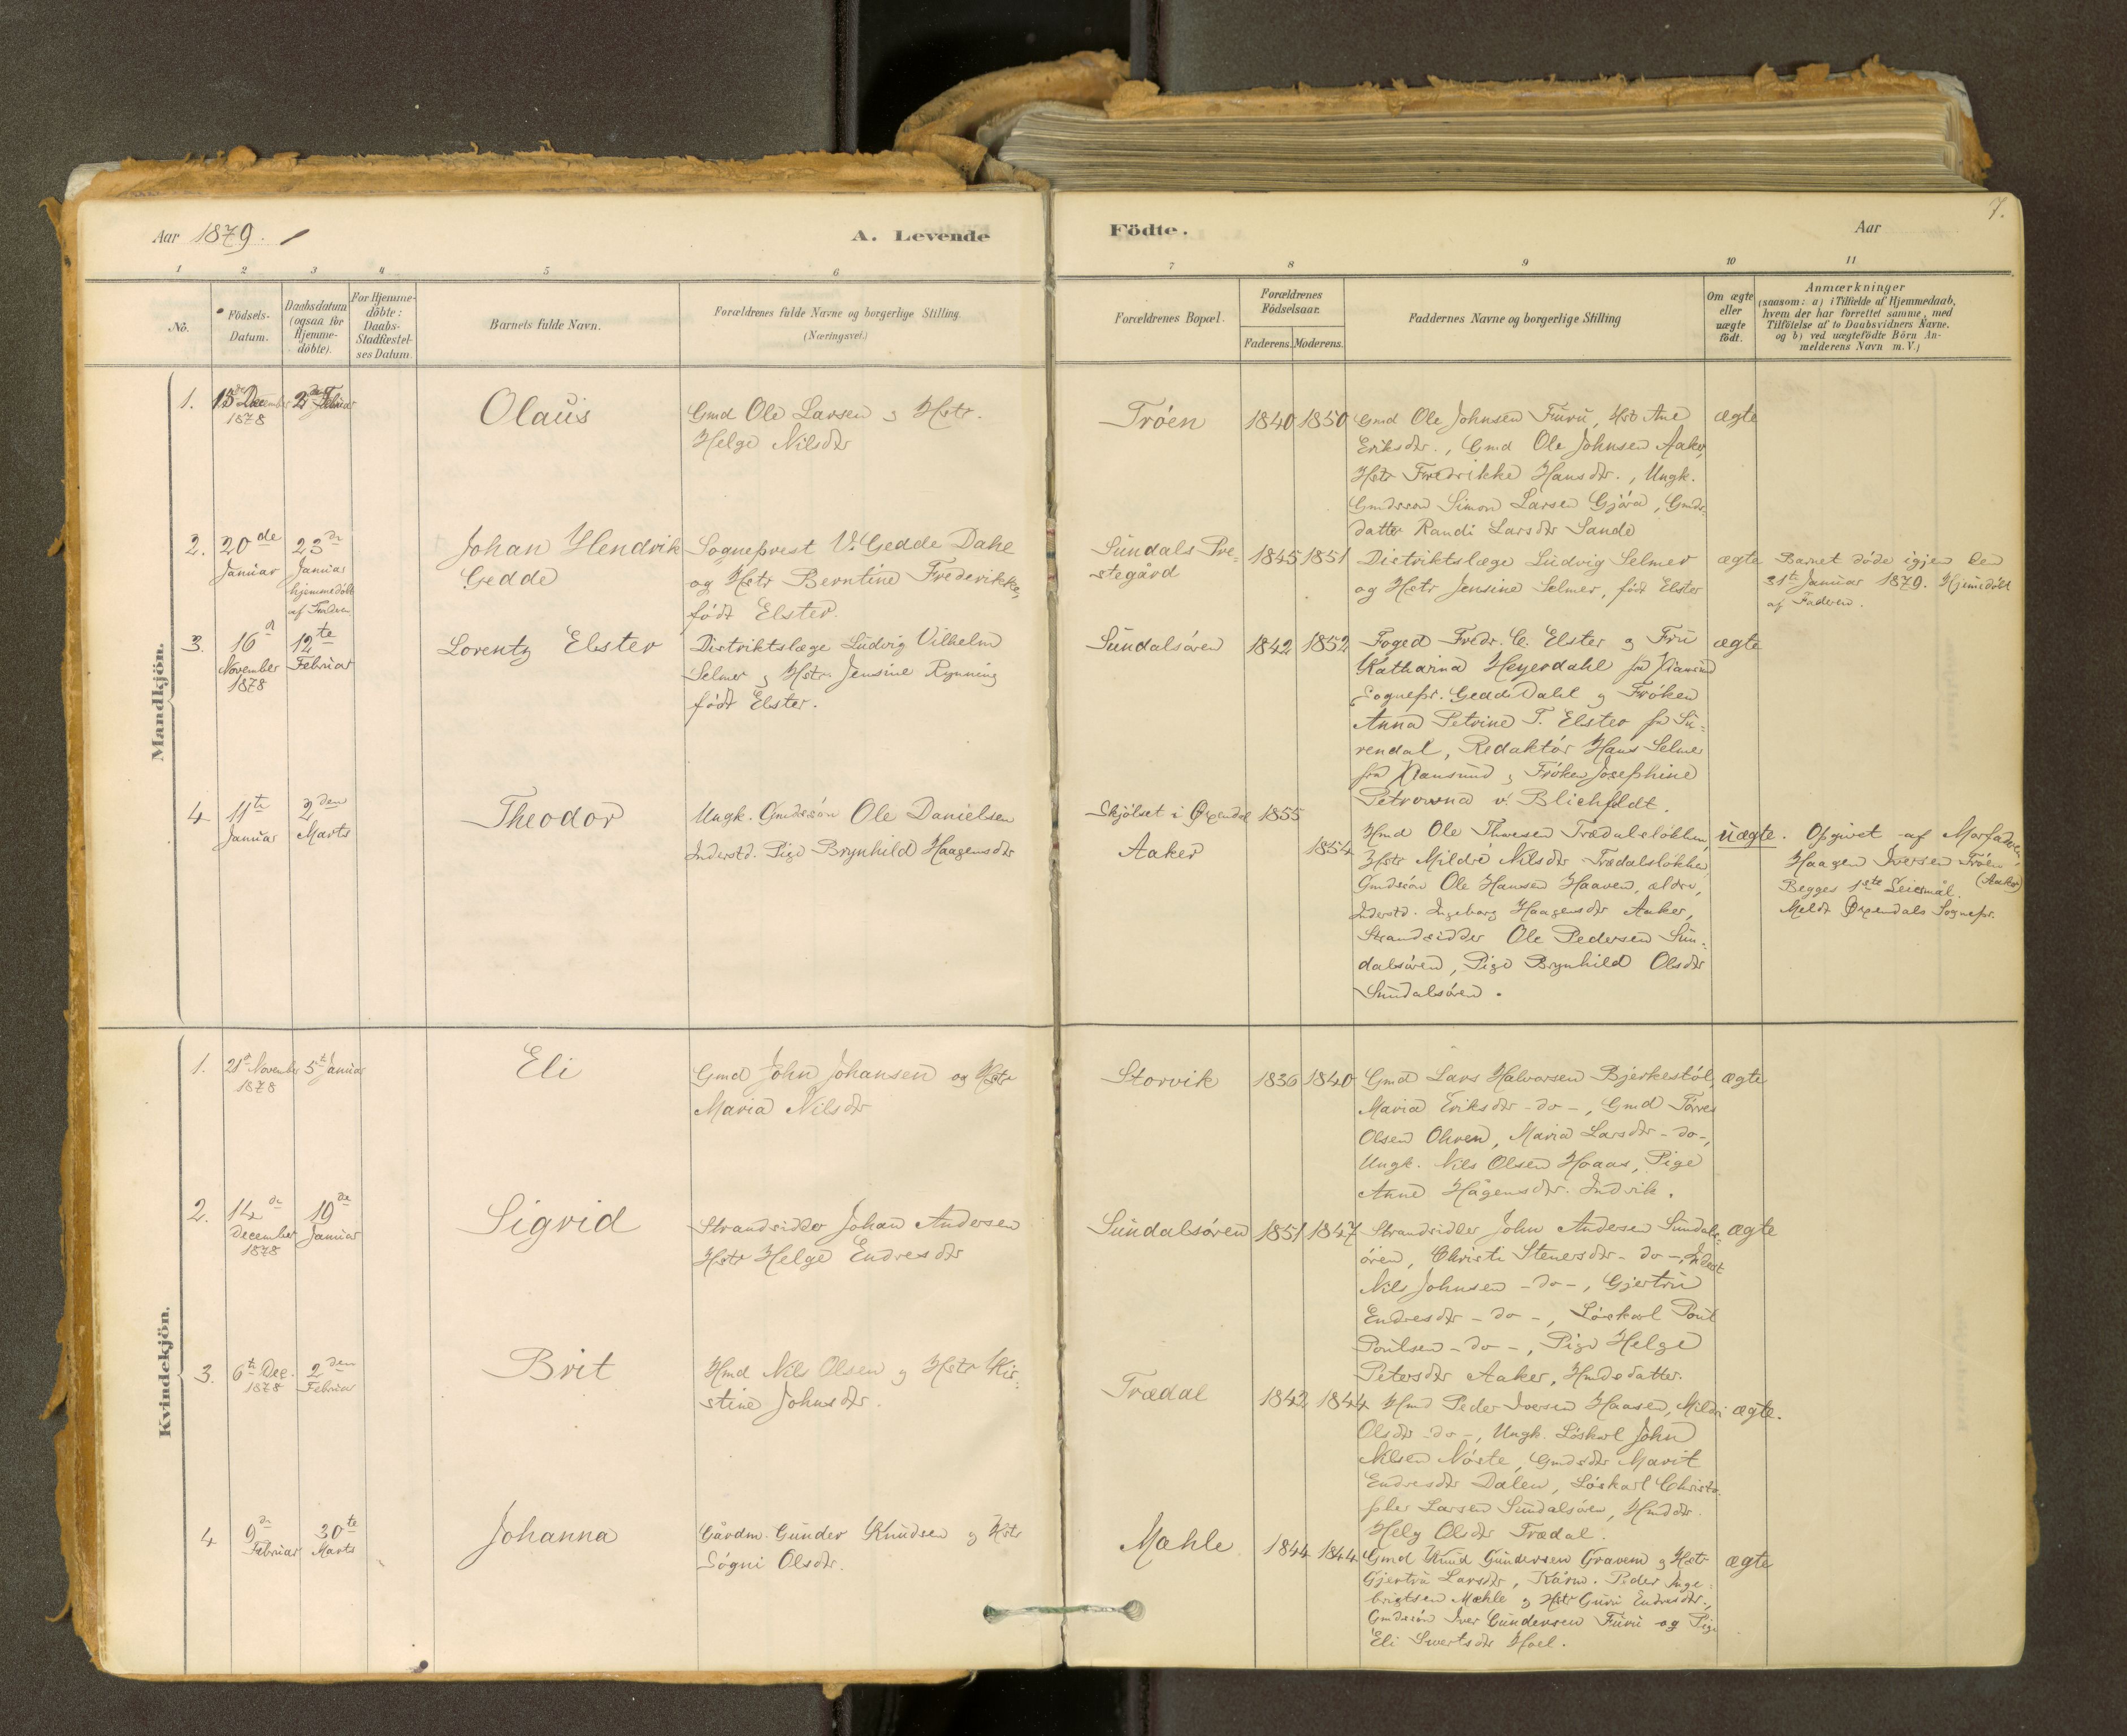 Aar 1879.
A. Levende
Födte.
Aar
7.
1 2 3 4 5 6 7 8 9 10 11
Nö.
Födsels-
Datum.
Daabsdatum
(ogsaa for
Hjemme-
döbte).
For Hjemme-
döbte:
Daabs-
Stadfæstel-
ses Datum.
Barnets fulde Navn.
Forældrenes fulde Navne og borgerlige Stilling
(Næringsvei.)
Forældrenes Bopæl.
Forældrenes
Födselsaar.
Faderens. Moderens.
Faddernes Navne og borgerlige Stilling
Om ægte
eller
uægte
födt.
Anmærkninger
(saasom: a) i Tilfælde af Hjemmedaab,
hvem der har forrettet samme, med
Tilföielse af to Daabsvidners Navne.
og b) ved uægtefödte Börn An-
melderens Navn m. V.)
Mandkjön.
1.
15de December
1878
2den Februar
Olaus
Gmd Ole Larsen og Hstr.
Helge Nilsdtr
Tröen
1840 1850
Gmd Ole Johnsen Furu, Hstr Ane
Eriksdtr., Gmd Ole Johnsen Aaker,
Hstr Fredrikke Hansdtr., Ungk.
Gmdssön Simon Larsen Gjöra, Gmds-
datter Randi Larsdtr Sande
ægte
2.
20de
Januar
23de
Januar
hjemmedöbt
af Faderen
Johan Hendrik
Gedde
Sogneprest V. Gedde Dahl
og Hstr Berntine Frederikke,
født Elster.
Sundals Pre-
stegård
1845 1851
Distriktslæge Ludvig Selmer
og Hstr Jensine Selmer, født Elster
ægte
Barnet döde igjen den
31te Januar 1879. Hjemdöbt
af Faderen.
3.
16de
November
1878
12te
Februar
Lorentz Elster
Distriktslæge Ludvig Vilhelm
Selmer og Hstr. Jensine Rynning
født Elster.
Sundalsören
1842 1852
Foged Fredr. C. Elster og Fru
Katharina Heyerdahl fra Xiansund
Sognepr. Gedde Dahl og Fröken
Anna Petrine T. Elster fra Su-
rendal, Redaktör Hans Selmer
fra Xiansund og Fröken Josephine
Petrowna v. Blichfeldt.
ægte
4
11te
Januar
2den
Marts
Theodor
Ungk. Gmdssön Ole Danielsen
Inderstd. Pige Brynhild Haagensdtr
Skjölset i Öxendal
Aaker
1855
1854
Hmd Ole Thoresen Trædalslökken,
Hstr Mildri Nilsdtr Trædalslökke,
Gmdssön Ole Hansen Haaven, ældre,
Inderstd. Ingeborg Haagensdtr Aaker,
Strandsidder Ole Pedersen Sun-
dalsören, Pige Brynhild Olsdtr
Sundalsören.
uægte.
Opgivet af Morfaderen,
Haagen Iversen Tröen
(Aaker)
Begges 1ste Leiermål.
Meldt Öxendals Sognepr.
Kvindekjön.
1.
21de November
1878
5te Januar
Eli
Gmd John Johansen og Hstr
Maria Nilsdtr
Storvik
1836 1840
Gmd Lars Halvorsen Bjerkestöl,
Maria Eriksdtr -do-, Gmd Törres
Olsen Ohren, Maria Larsdtr -do-,
Ungk. Nils Olsen Hoaas, Pige
Anne Hågensdtr. Indvik.
ægte
2.
14de
December
1878
19de
Januar
Sigrid
Strandsidder Johan Andersen
Hstr Helge Endresdtr
Sundalsören
1851 1847
Strandsidder John Andersen Sundals-
ören, Christi Stenersdtr -do-, Inderst
Nils Johnsen -do-, Gjertru
Endresdtr -do-, Löskarl Poul
Poulsen -do-, Pige Helge
Petersdtr Aaker, Hmdsdatter.
ægte
3.
6te Dec.
1878
2den
Februar
Brit
Hmd Nils Olsen og Hstr Kir-
stine Johnsdtr.
Trædal
1842 1844
Hmd Peder Iversen Haasen, Mildri
Olsdtr -do-, Ungk. Löskarl John
Nilsen Nöste, Gmdsdtr Marit
Endresdtr Dalen, Löskarl Christo-
pher Larsen Sundalsören, Hmddtr.
Helg Olsdtr Trædal.
ægte.
4
9de
Februar
30te
Marts
Johanna
Gårdm. Gunder Knudsen og Hstr
Sögni Olsdtr.
Mæhle
1844 1844
Gmd Knud Gundersen Gravem og Hstr
Gjertru Larsdtr, Kårm. Peder Inge-
brigtsen Mæhle og Hstr Guru Endresdtr.,
Gmdssön Iver Gundersen Furu og Pige
Eli Sivertsdtr Hoel.
ægte